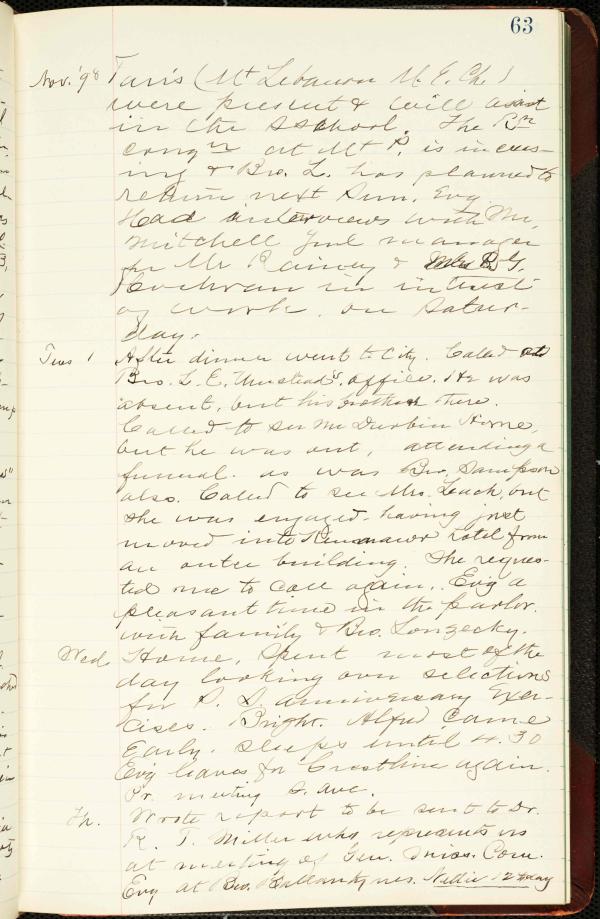 63
Nov. '98 Tavis (Mt Lebanon M. E. Ch.)
were present & will assist
in the S school. The
congn at Mt P. is increas-
ing & Bro. L. has planned to
return next Sun. Evg.
Had interviews with Mr.
Mitchell Genl manager
for Mr Rainey & G.
Cochran in interest
of work, on Satur-
day.
Tues 1 After dinner went to City. Called at
Bro. L. E. Umstead's office. He was
absent, but his brother there.
Called to see Mr Durbin Horne,
but he was out, attending a
funeral. as was Bro. Sampson
also. Called to see Mrs. Leach, but
she was engaged. having just
moved into Kenmawr hotel from
an outer building. She reques-
ted me to call again. Evg a
pleasant time in the parlor.
with family & Bro. Longecky.
Wed. Home, spent most of the
day looking over selections
for S. S. anniversary Exer-
cises. Bright. Alfred came
Early. sleeps until 4.30
Evg leaves for Crestline again.
Pr. meeting S. ave.
Th. Wrote report to be sent to Dr.
R. T. Miller who represents us
at meeting of Gen. Miss. Com.
Evg at Bro. Ballantynes. Nellie 12 today